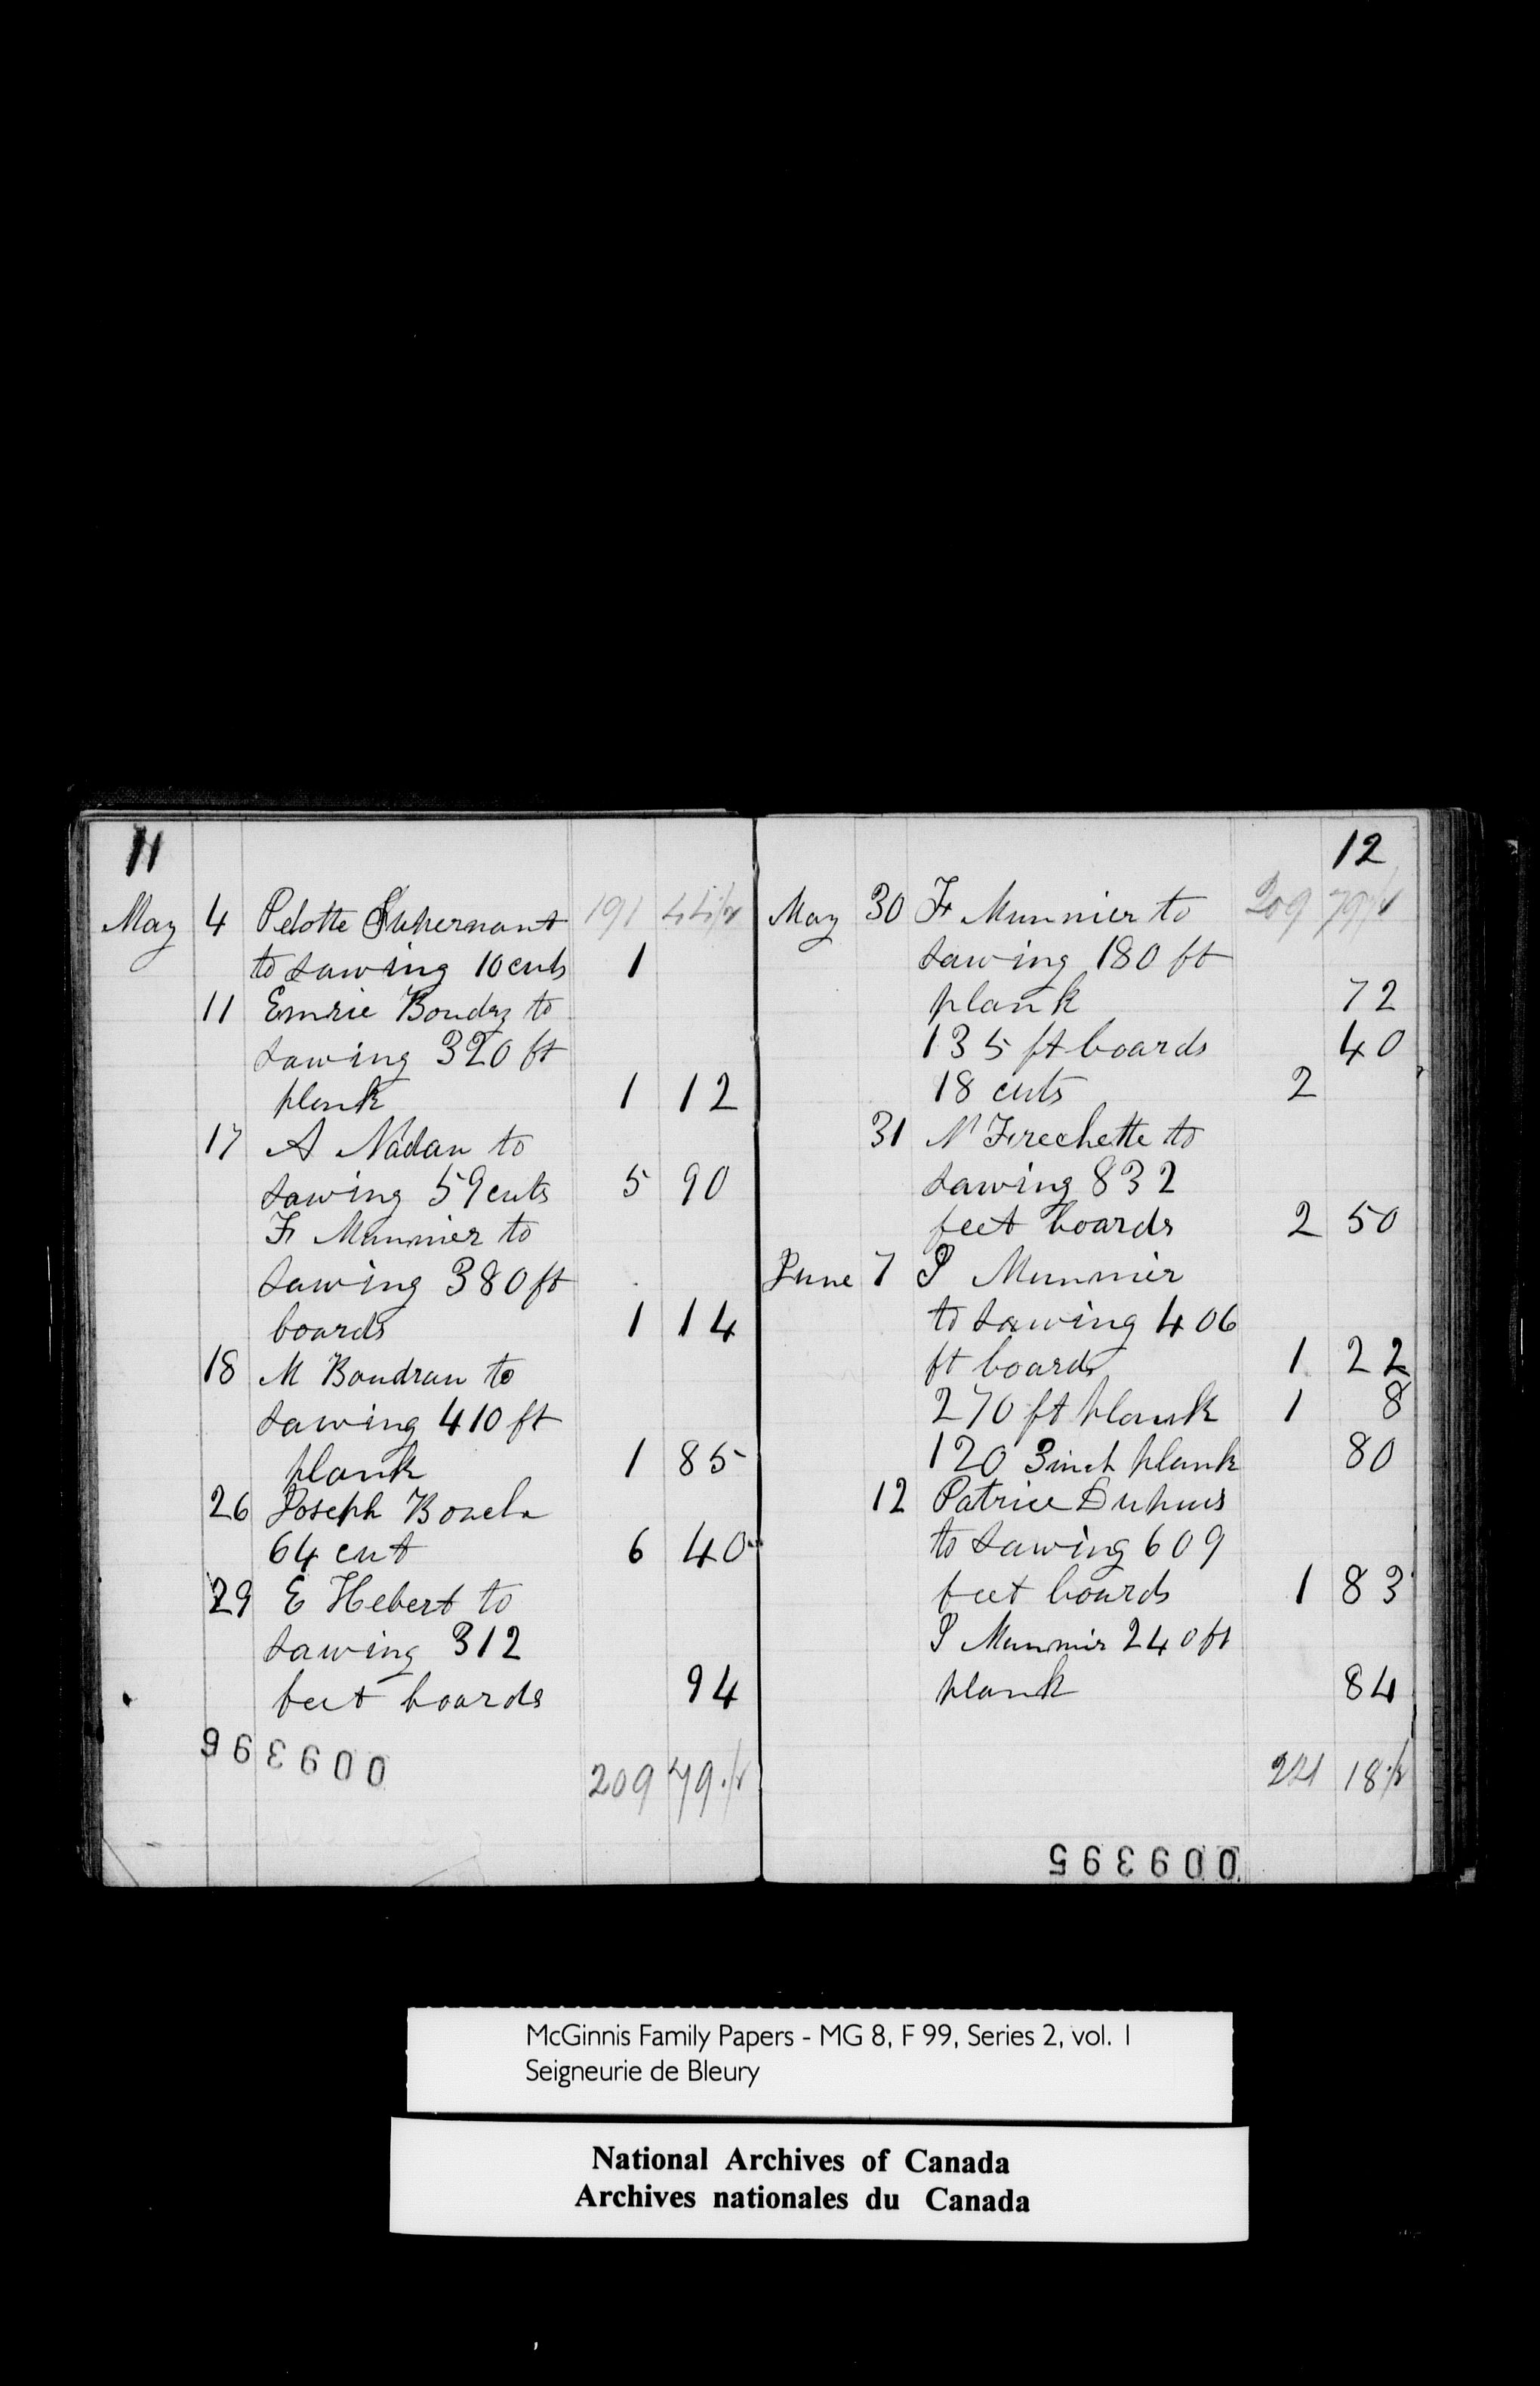 11
May 4 Pelotte Suhernant 191 44½
to sawing 10 cuts 1
11 Emrie Boudry to
sawing 320 ft
plank 1 12
17 A Nadau to
sawing 59 cuts 5 90
Fr Munnier to
sawing 380 ft
boards 1 14
18 M Boudrau to
sawing 410 ft
plank 1 85
26 Joseph
64 cut 6 40
29 E Hebert to
sawing 312
feet boards 94
209 79½
009396
12
May 30 Fr Munnier to 209 79½
sawing 180 ft
plank 72
135 ft boards 40
18 cuts 2
31 N Frechette to
sawing 832
feet boards 2 50
June 7 P Munnier
to sawing 406
ft boards 1 22
270 ft plank 1 8
120 3 inch plank 80
12 Patrice Duhuis
to sawing 609
feet boards 1 83
P Munnier 240 ft
plank 84
221 18½
009395
McGinnis Family Papers - MG 8, F 99, Series 2, vol. 1
Seigneurie de Bleury
National Archives of Canada
Archives nationales du Canada